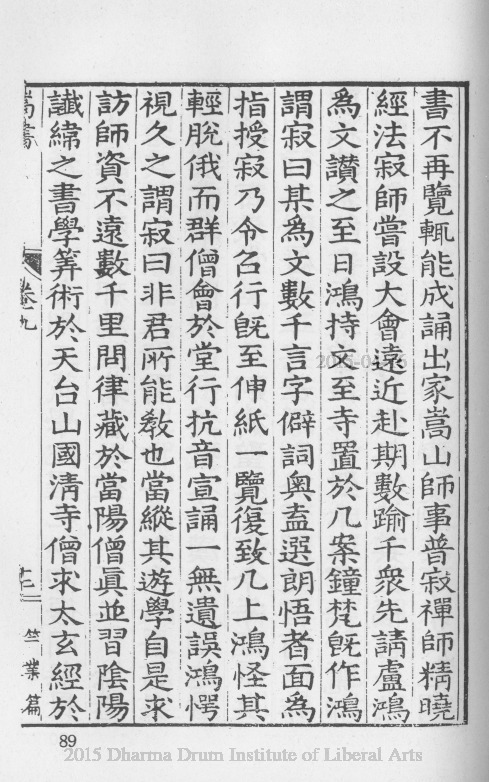 書不再覽輒能成誦出家嵩山師事普寂禪師精曉
經法寂師嘗設大會遠近赴期數踰千衆先請盧鴻
為文讃之至日鴻持文至寺置於几案鐘梵旣作鴻
謂寂曰某為文數千言字僻詞奧盍選朗悟者面為
指授寂乃令召行旣至伸紙一覽復致几上鴻怪其
輕脫俄而群僧會於堂行抗音宣誦一無遺誤鴻愕
視久之謂寂曰非君所能敎也當縱其遊學自是求
訪師資不遠數千里問律藏於當陽僧眞並習陰陽
讖緯之書學筭術於天台山國淸寺僧求太玄經於
嵩書
卷九
十二
竺業篇
89
2015 Dharma Drum Institute of Liberal Arts